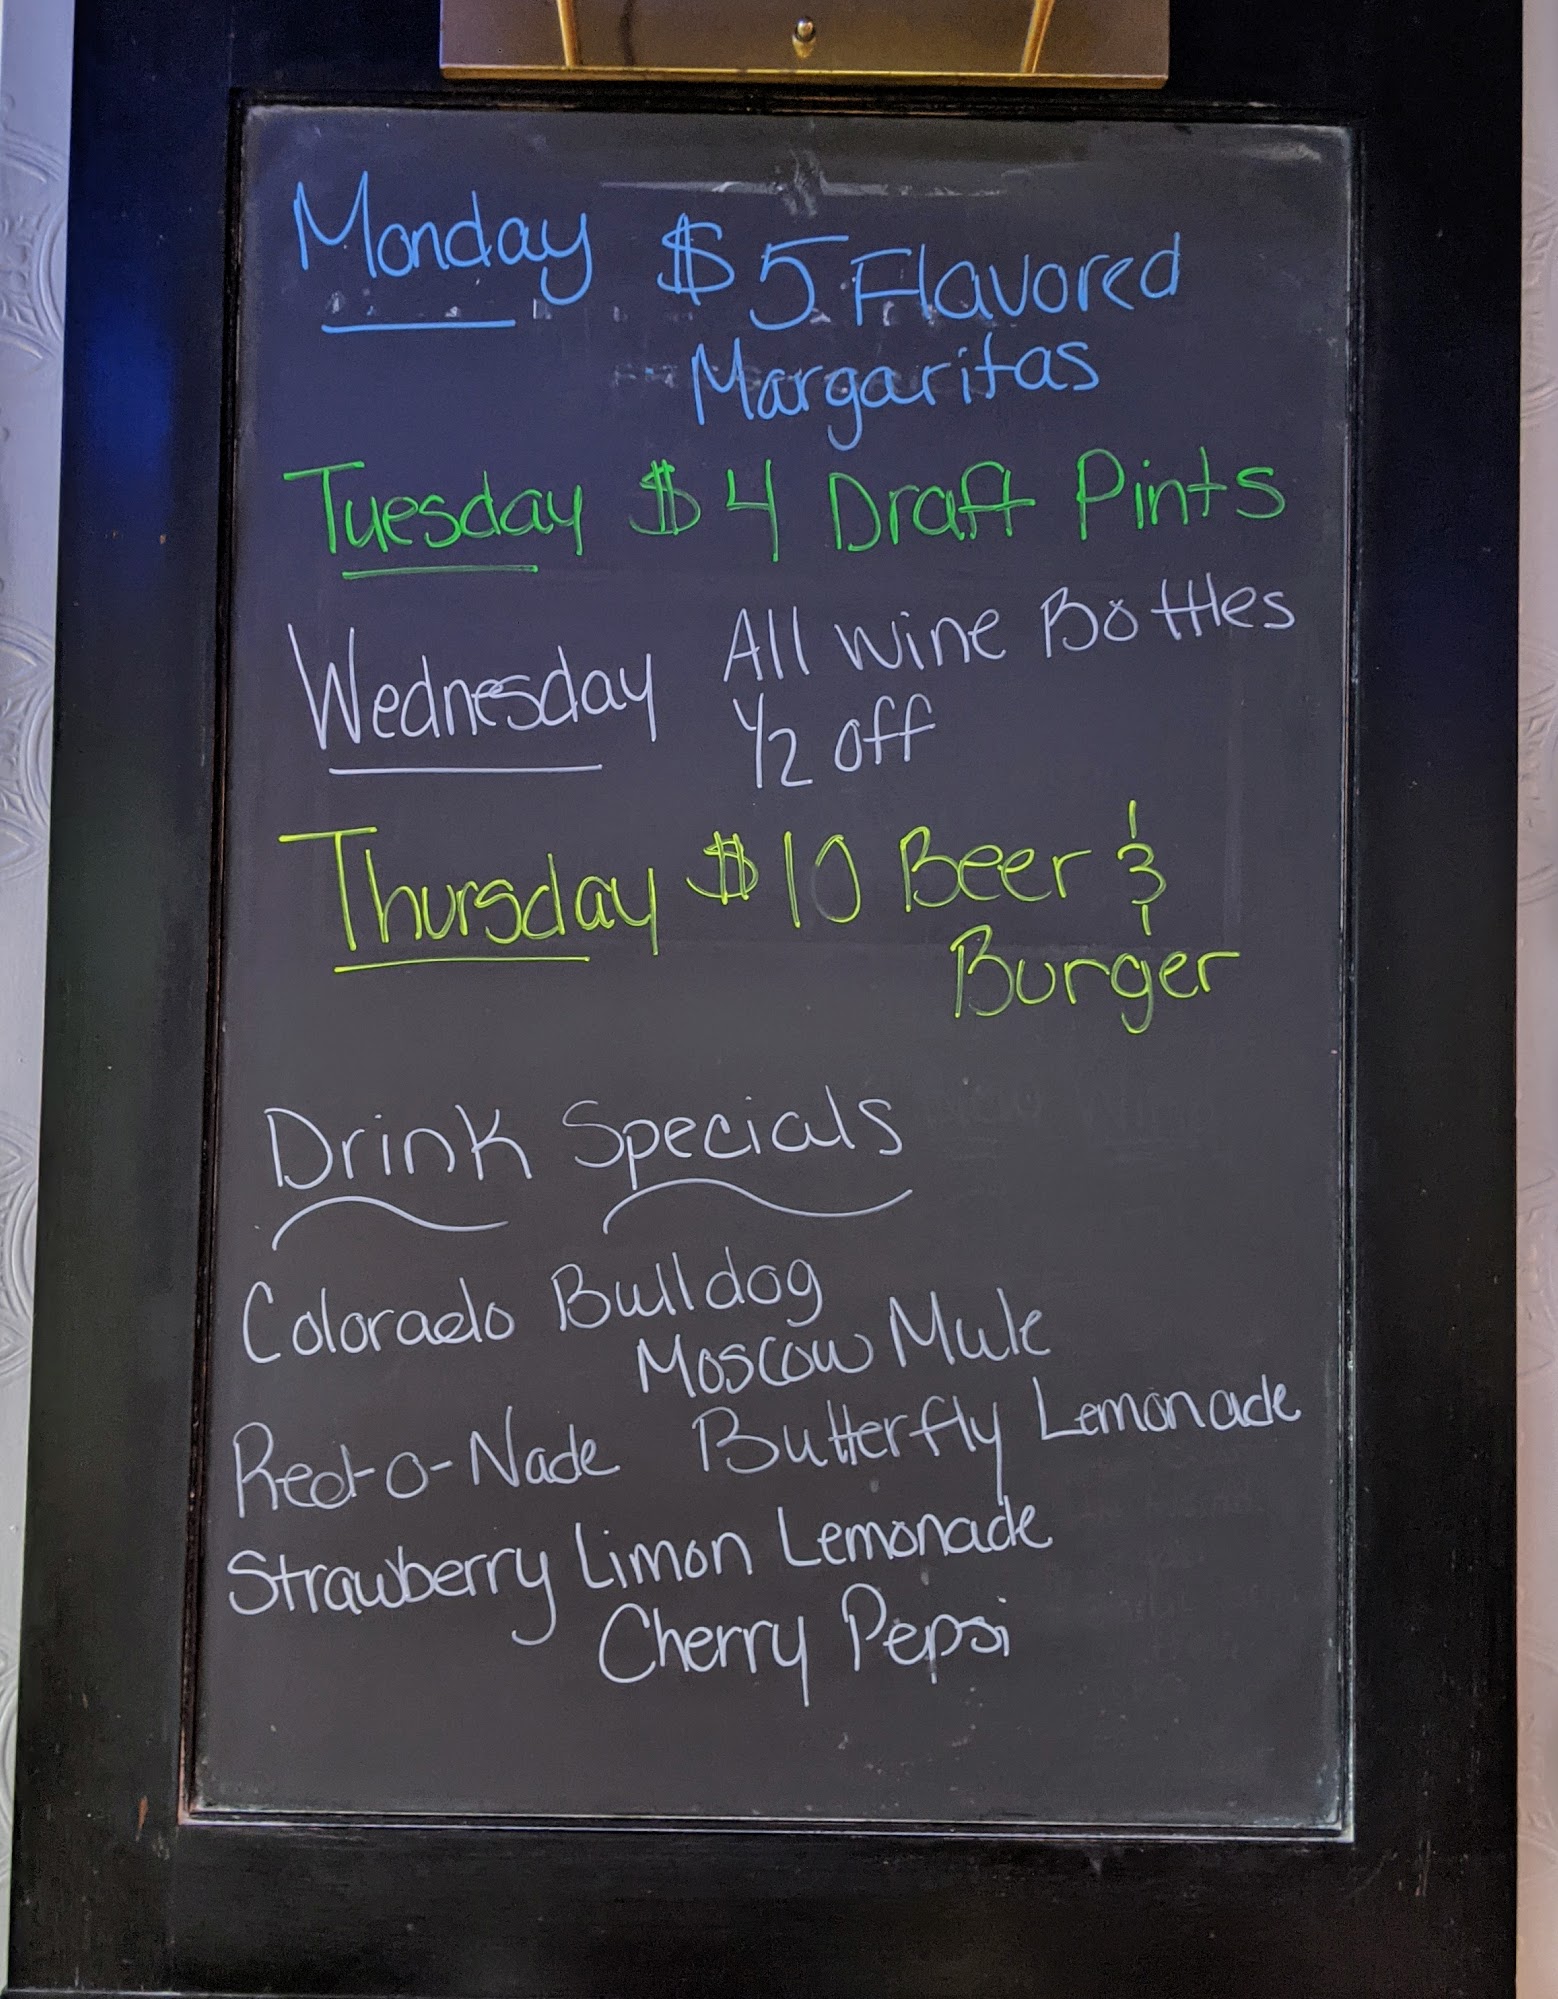 Monday $5 Flavored
Margaritas
Tuesday $4 Draft Pints
Wednesday All Wine Bottles
1/2 off
Thursday $10 Beer &
Burger
Drink Specials
Colorado Bulldog
Moscow Mule
Red-o-Nade Butterfly Lemonade
Strawberry Limon Lemonade
Cherry Pepsi